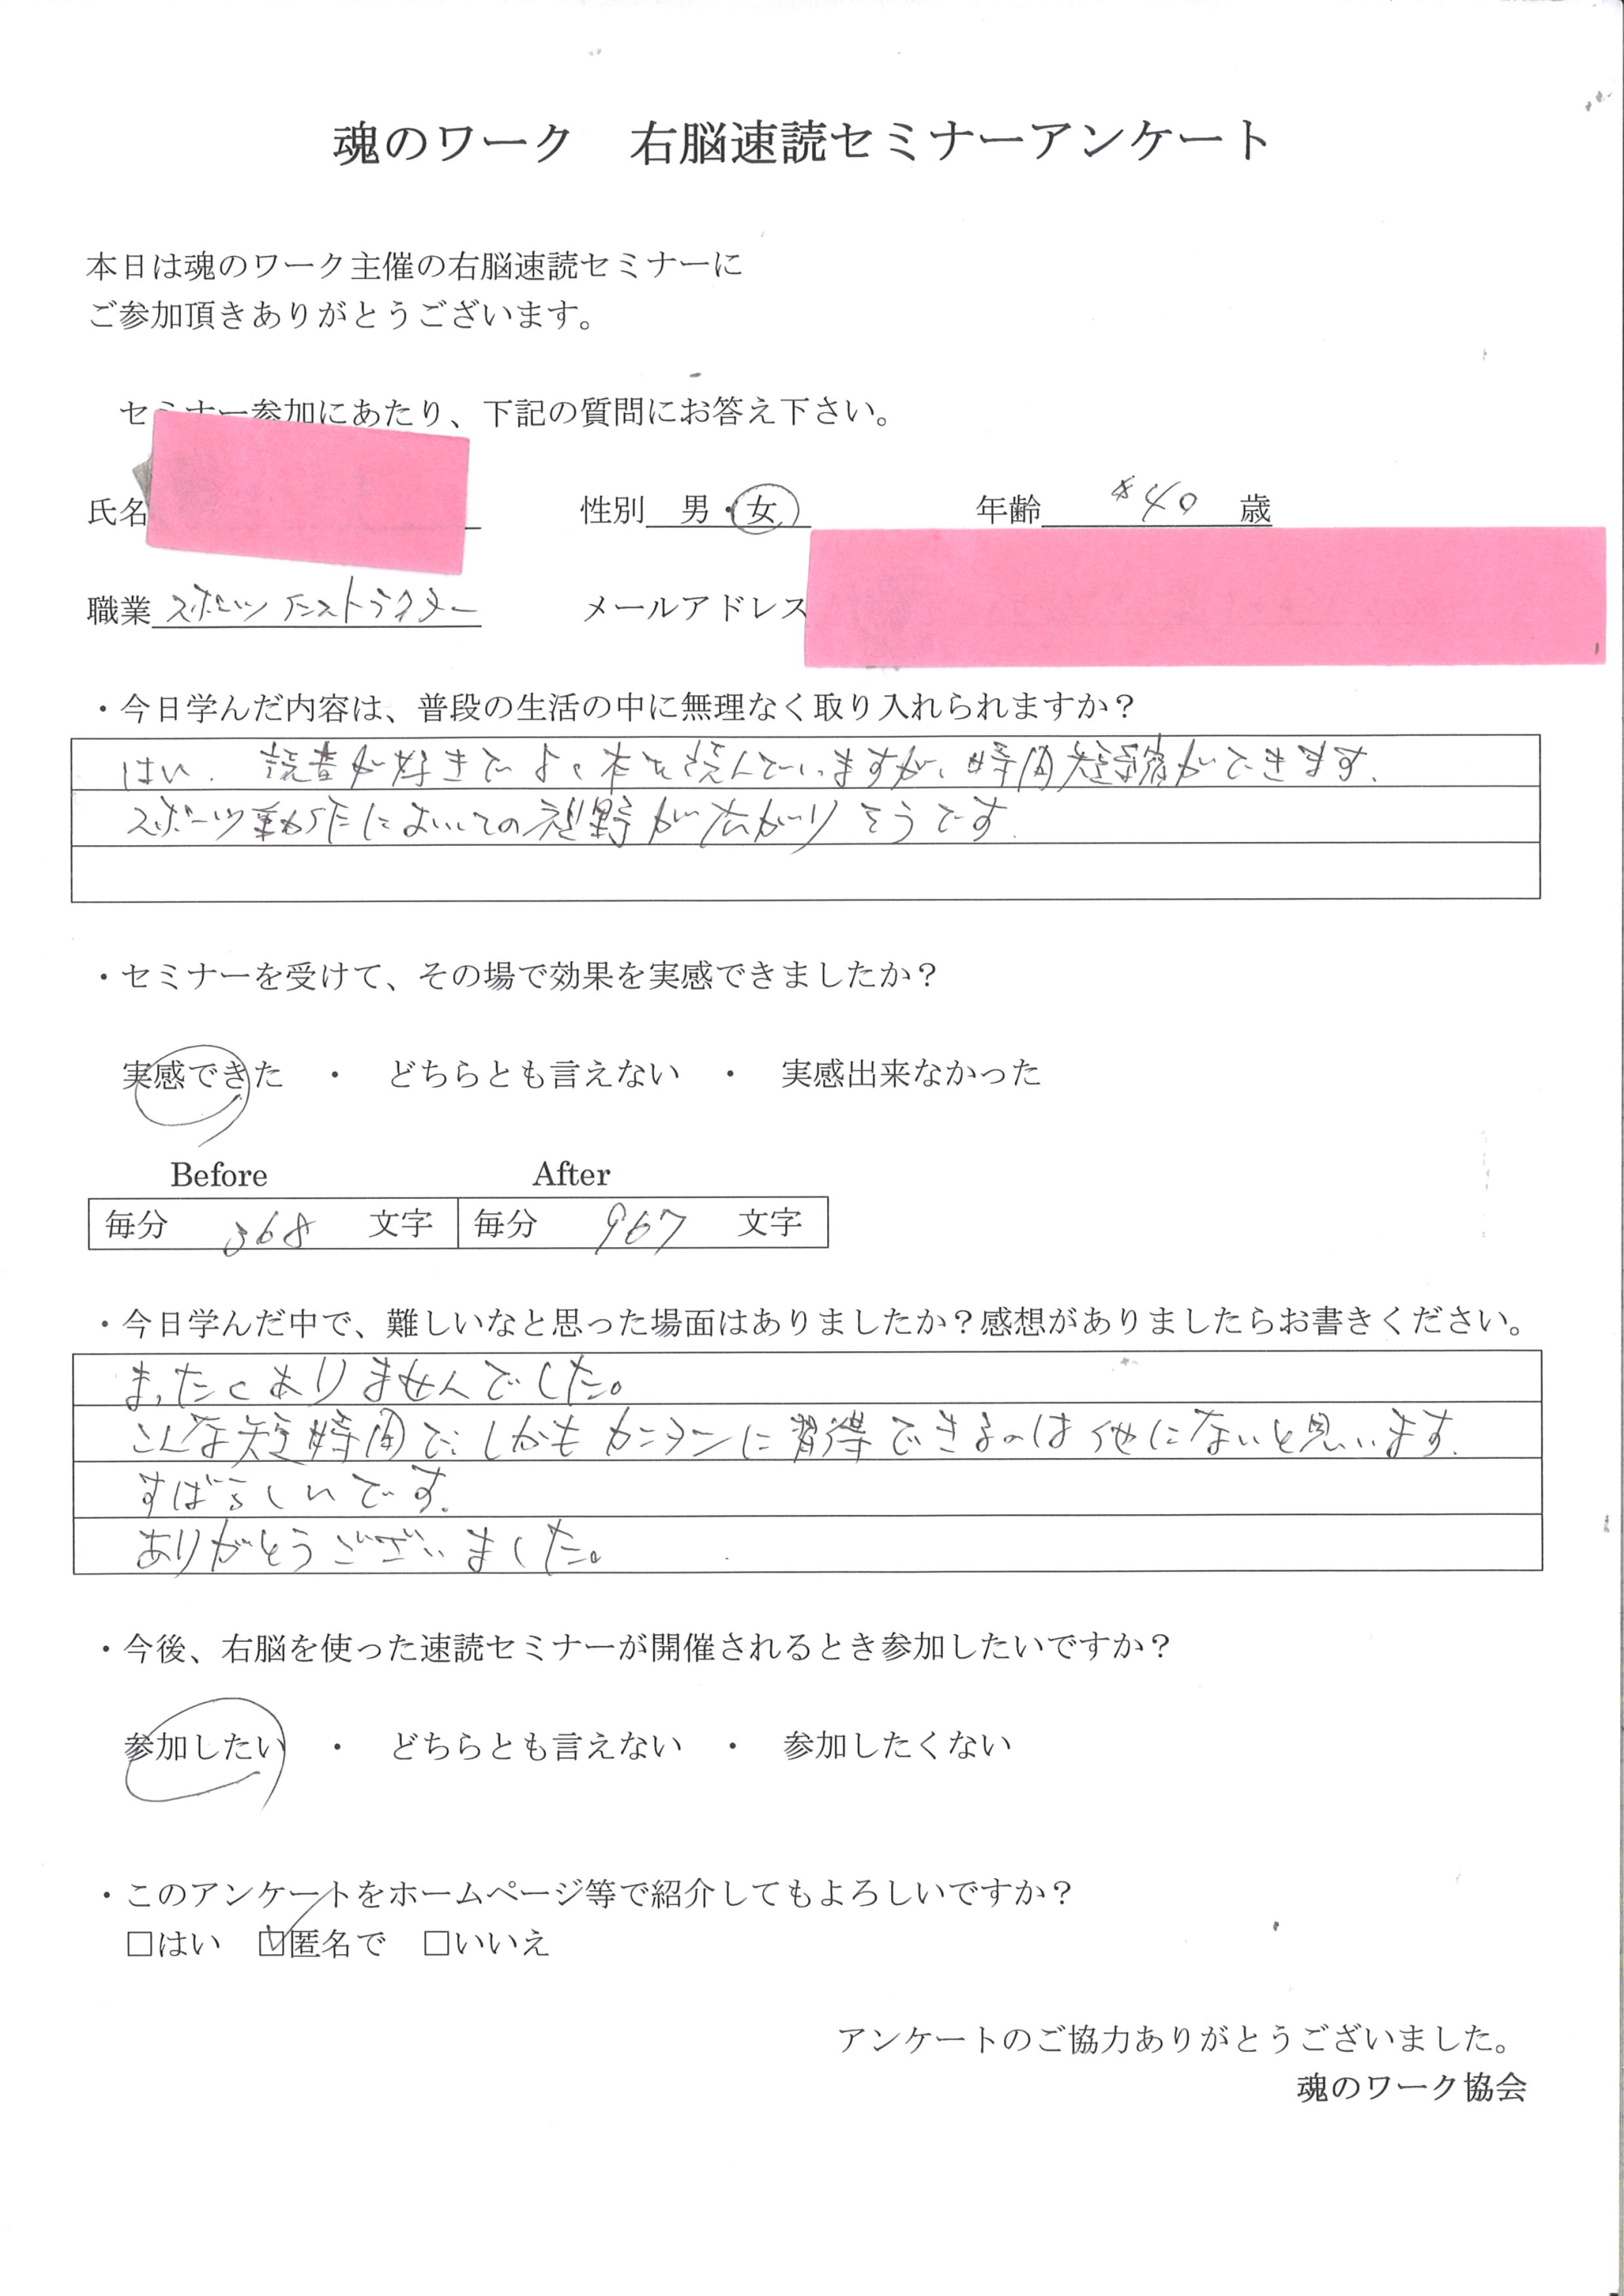 魂のワーク　右脳速読セミナーアンケート
本日は魂のワーク主催の右脳速読セミナーに
ご参加頂きありがとうございます。
セミナー参加にあたり、下記の質問にお答え下さい。
氏名 性別 男・女 年齢 40 歳
職業 スポーツインストラクター メールアドレス
・今日学んだ内容は、普段の生活の中に無理なく取り入れられますか？
はい. 読書が好きでよく本を読んでいますが、時間短縮ができます.
スポーツ動作においての視野が広がりそうです.
・セミナーを受けて、その場で効果を実感できましたか？
実感できた　・　どちらとも言えない　・　実感出来なかった
Before After
毎分 368 文字 毎分 967 文字
・今日学んだ中で、難しいなと思った場面はありましたか？感想がありましたらお書きください。
まったくありませんでした。
こんな短時間で、しかもカンタンに習得できるのは他にないと思います.
すばらしいです.
ありがとうございました。
・今後、右脳を使った速読セミナーが開催されるとき参加したいですか？
参加したい　・　どちらとも言えない　・　参加したくない
・このアンケートをホームページ等で紹介してもよろしいですか？
□はい ☑匿名で □いいえ
アンケートのご協力ありがとうございました。
魂のワーク協会